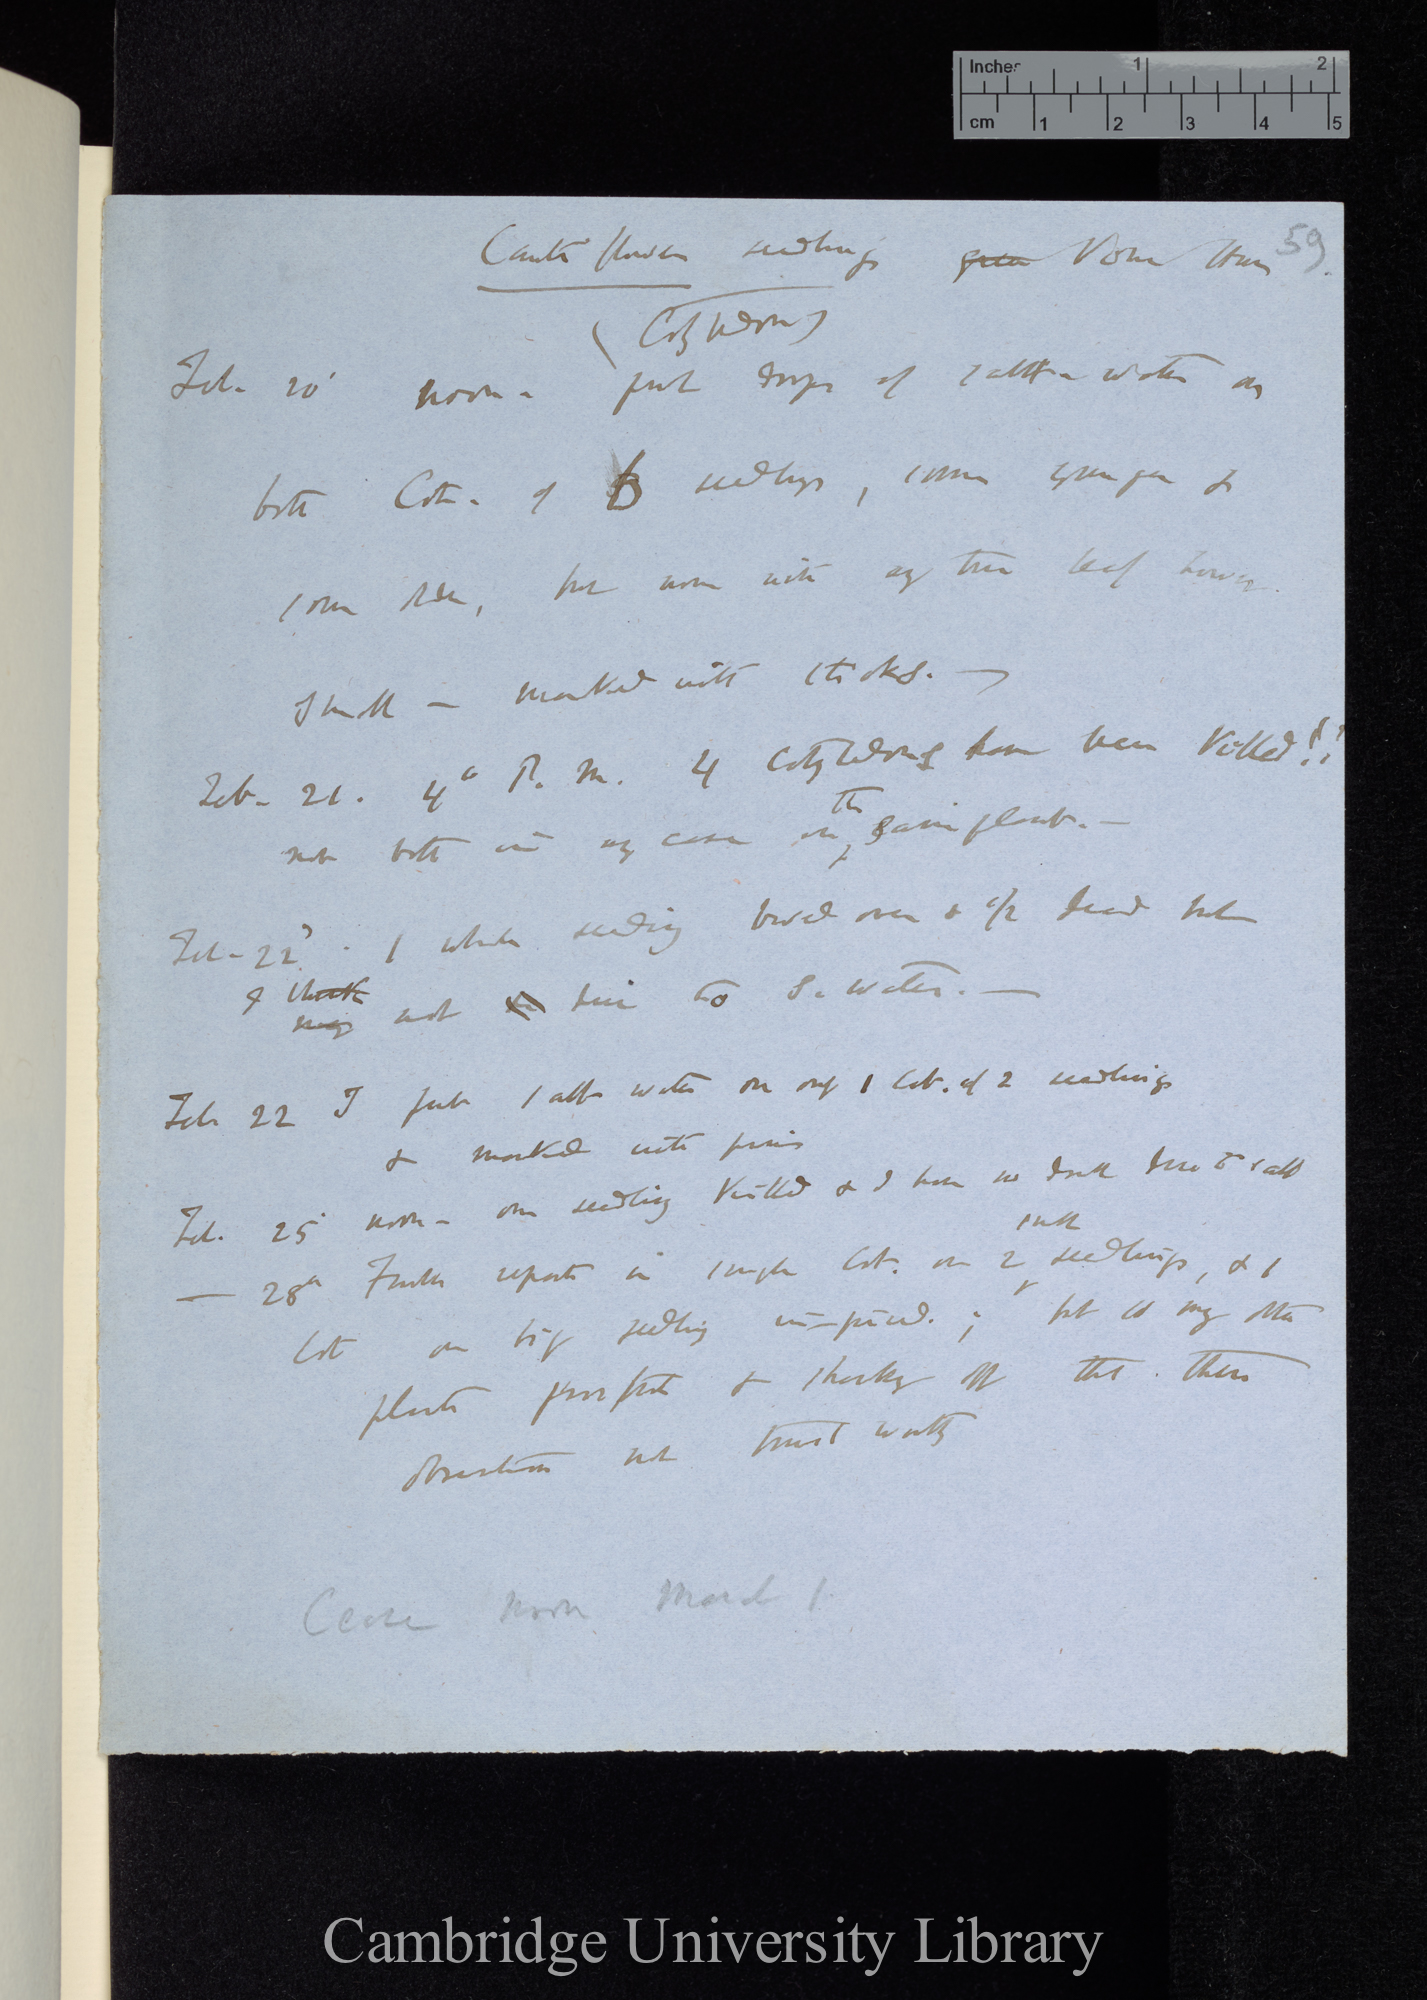 Inches 1 2
cm 1 2 3 4 5
59.
Cauliflower seedlings green
(Cotyledons)
Feb. 20' noon - put drops of salt-water on
both Cots. of seedlings, some younger &
some older, but none with any true leaf
Small — marked with sticks. —
Feb. 21. 4° P. M. 4 Cotyledons have been killed!!
not both in any case on the same plant. —
Feb. 22d. 1 whole seedling bowed over & 1/2 dead but
& think not due to S. water. —
Feb 22 I put salt water on only 1 Cot. of 2 seedlings
& marked with pins
Feb. 25 noon - one seedling killed & I have no doubt due to salt
small
— 28th reports in single Cot. on 2 seedlings, & 1
Cot on big seedling injured. ; but so many other
plants & off that these
observations not trustworthy
Cease noon March 1.
Cambridge University Library